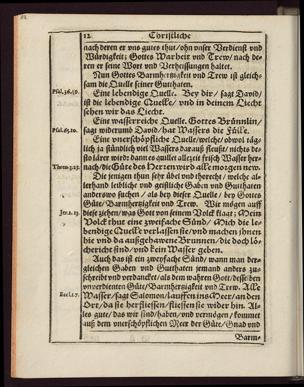 12 Christliche
nach deren er vns gutes thut/ohn vnser Verdienst vnd
Würdigkeit; Gottes Warheit vnd Trew/nach de-
ren er seine Wort vnd Verheissungen haltet.
Nun Gottes Barmhertzigkeit vnd Trew ist gleich-
sam die Quelle seiner Gutthaten.
Eine lebendige Quelle. Bey dir/ sagt David/
ist die lebendige Quelle/ vnd in deinem Liecht
sehen wir das Liecht.
Eine wasserreiche Quelle. Gottes Brünnlin/
sagt widerumb David/ hat Wassers die Fülle.
Eine vnerschöpfliche Quelle/welche/ obwol täg-
lich ja stündlich viel Wassers darauß fleußt/ nichts de-
sto lärer wirdt: dann es quillet allezeit frisch Wasser her-
nach/die Güte des Herren wird alle morgen new.
Die jenigen thun sehr übel vnd thorecht/ welche al-
lerhand leibliche vnd geistliche Gaben vnd Gutthaten
anderswo suchen / als bey dieser Quelle / bey Gottes
Güte/Barmhertzigkeit vnd Trew. Wir mögen auff
diese ziehen/was Gott von seinem Volck klagt; Mein
Volck thut eine zweyfache Sünd/ Mich die le-
bendige Quelle verlassen sie/ vnd machen ihnen
hie vnd da außgehawene Brunnen/ die doch lö-
chericht sind/ vnd kein Wasser geben.
Auch das ist ein zweyfache Sünd/ wann man der-
gleichen Gaben vnd Gutthaten jemand anders zu-
schreibt vnd verdanckt/ als dem wahren Gott/ dessel-
ben vnverdienten Güte/ Barmhertzigkeit vnd Trew. Alle
Wasser/ sagt Salomon/ lauffen ins Meer/ an den
Ort/ da sie herfliessen/ fliessen sie wider hin. Al-
les gute/ das wir sind/ haben/ vnd vermögen/ kommet
auß dem vnerschöpflichen Meer der Güte/ Gnad vnd
Barm-
Psal. 36. 10.
Psal. 65. 10.
Thren. 3. 23.
Jer. 2. 13.
Eccl. 1. 7.